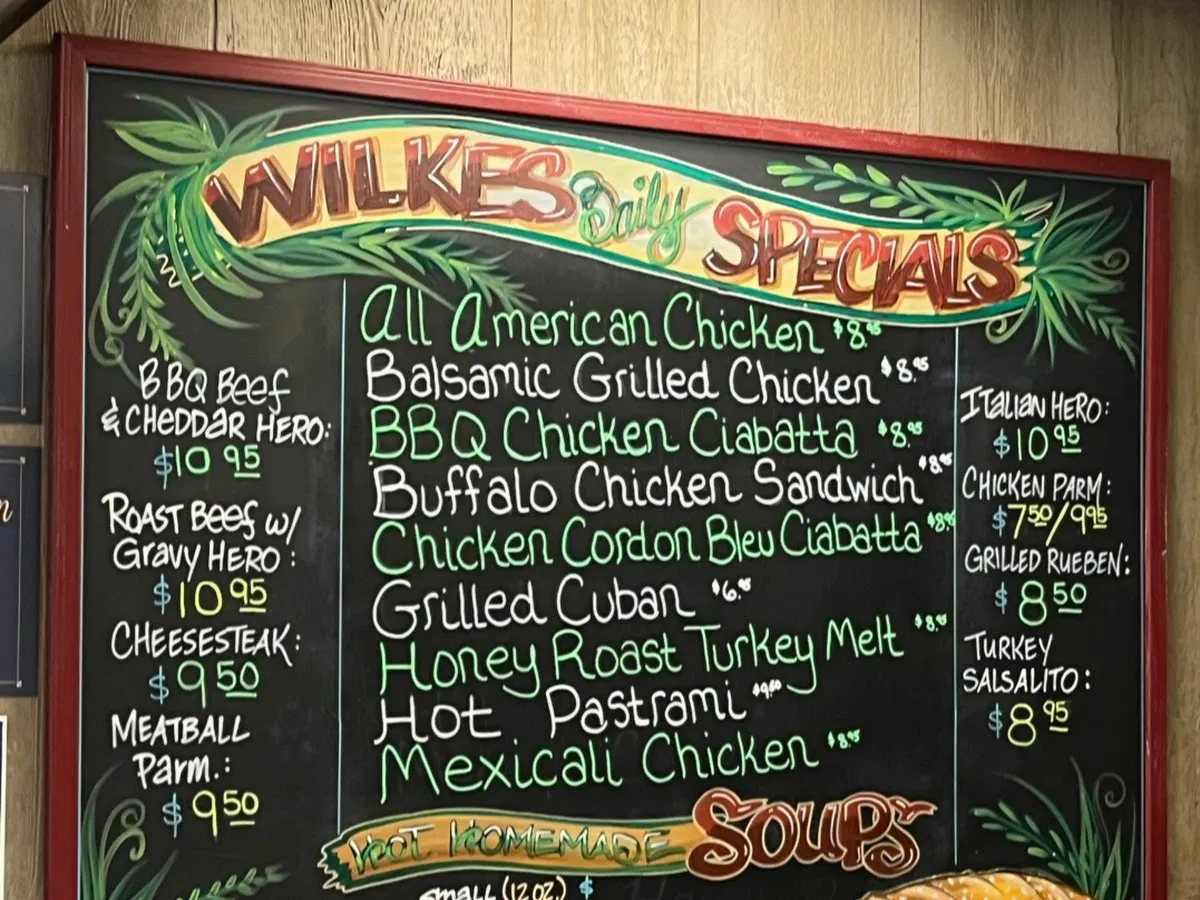 WILKES Daily SPECIALS
BBQ Beef
& CHEDDAR HERO:
$10 95
ROAST Beef w/
Gravy HERO:
$10 95
CHEESESTEAK:
$9 50
MEATBALL
Parm.:
$9 50
All American Chicken $8.95
Balsamic Grilled Chicken $8.95
BBQ Chicken Ciabatta $8.95
Buffalo Chicken Sandwich $8.95
Chicken Cordon Bleu Ciabatta $8.95
Grilled Cuban $6.95
Honey Roast Turkey Melt $8.95
Hot Pastrami $9.50
Mexicali Chicken $8.95
ITALIAN HERO:
$10 95
CHICKEN PARM:
$7 50/9 95
GRILLED RUEBEN:
$8 50
TURKEY
SALSALITO:
$8 95
HOT HOMEMADE SOUPS
SMALL (12 OZ.) $